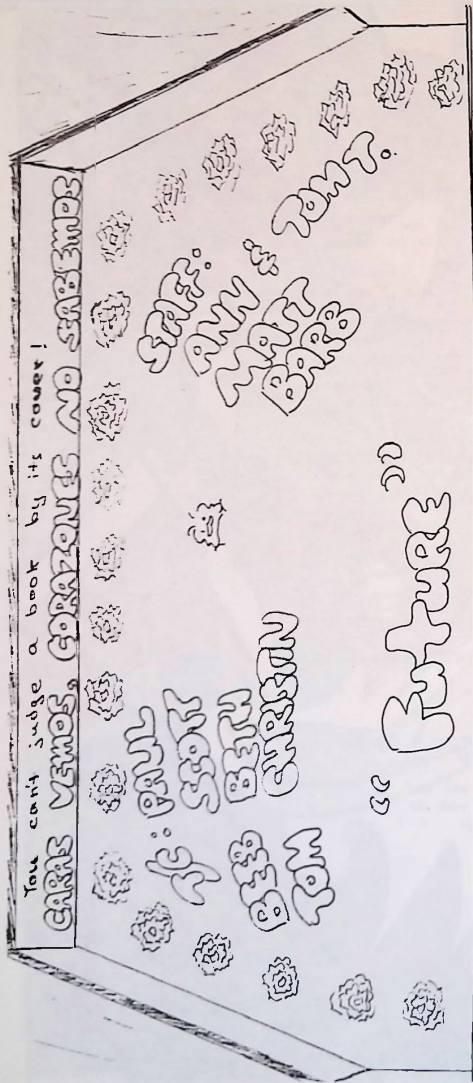 You can't judge a book by its cover!
CARAS VEMOS, CORAZONES NO SABEMOS
JC: PAUL
SCOTT
BETH
CHRISTIN
BEEB
TOM
STAFF:
ANN &
MATT
BARB
TOM T.
"FuTuRE"